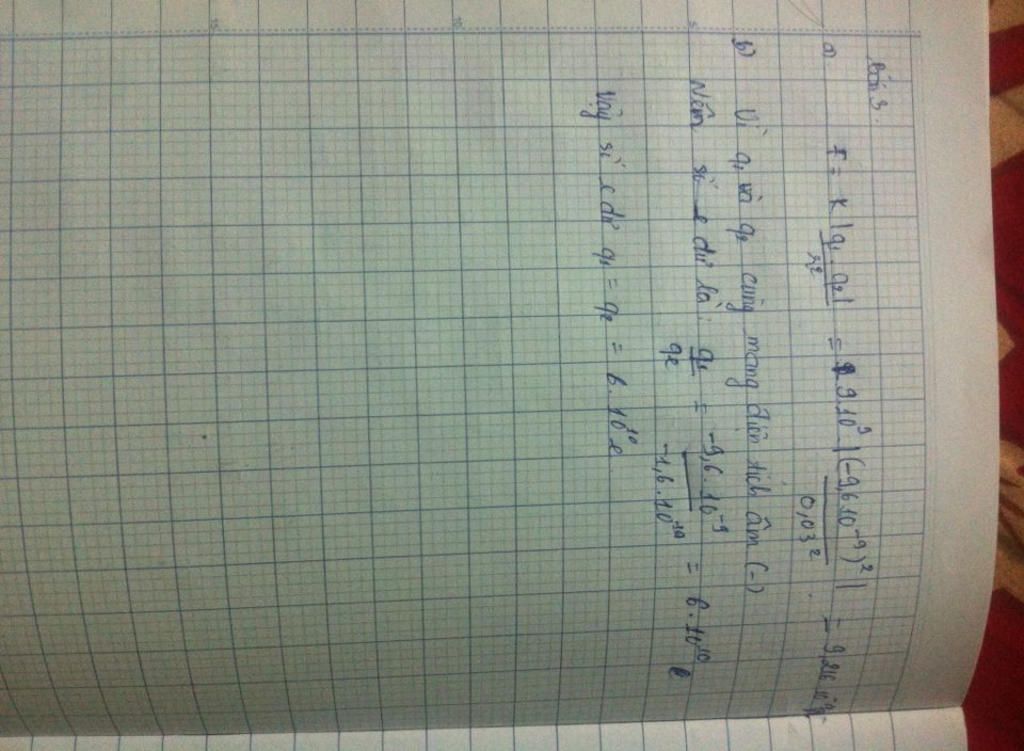 Bài 3.
a) F = k |q₁.q₂| / r² = 9.10⁹ |(-9,6.10⁻⁹)²| / 0,03² = 9,216.10⁻⁴
b) Vì q₁ và q₂ cùng mang điện tích âm (-)
Nêm số e dư là: q₁ / qe = -9,6.10⁻⁹ / -1,6.10⁻¹⁹ = 6.10¹⁰ e
Vậy số e dư q₁ = q₂ = 6.10¹⁰ e.
5
10
15